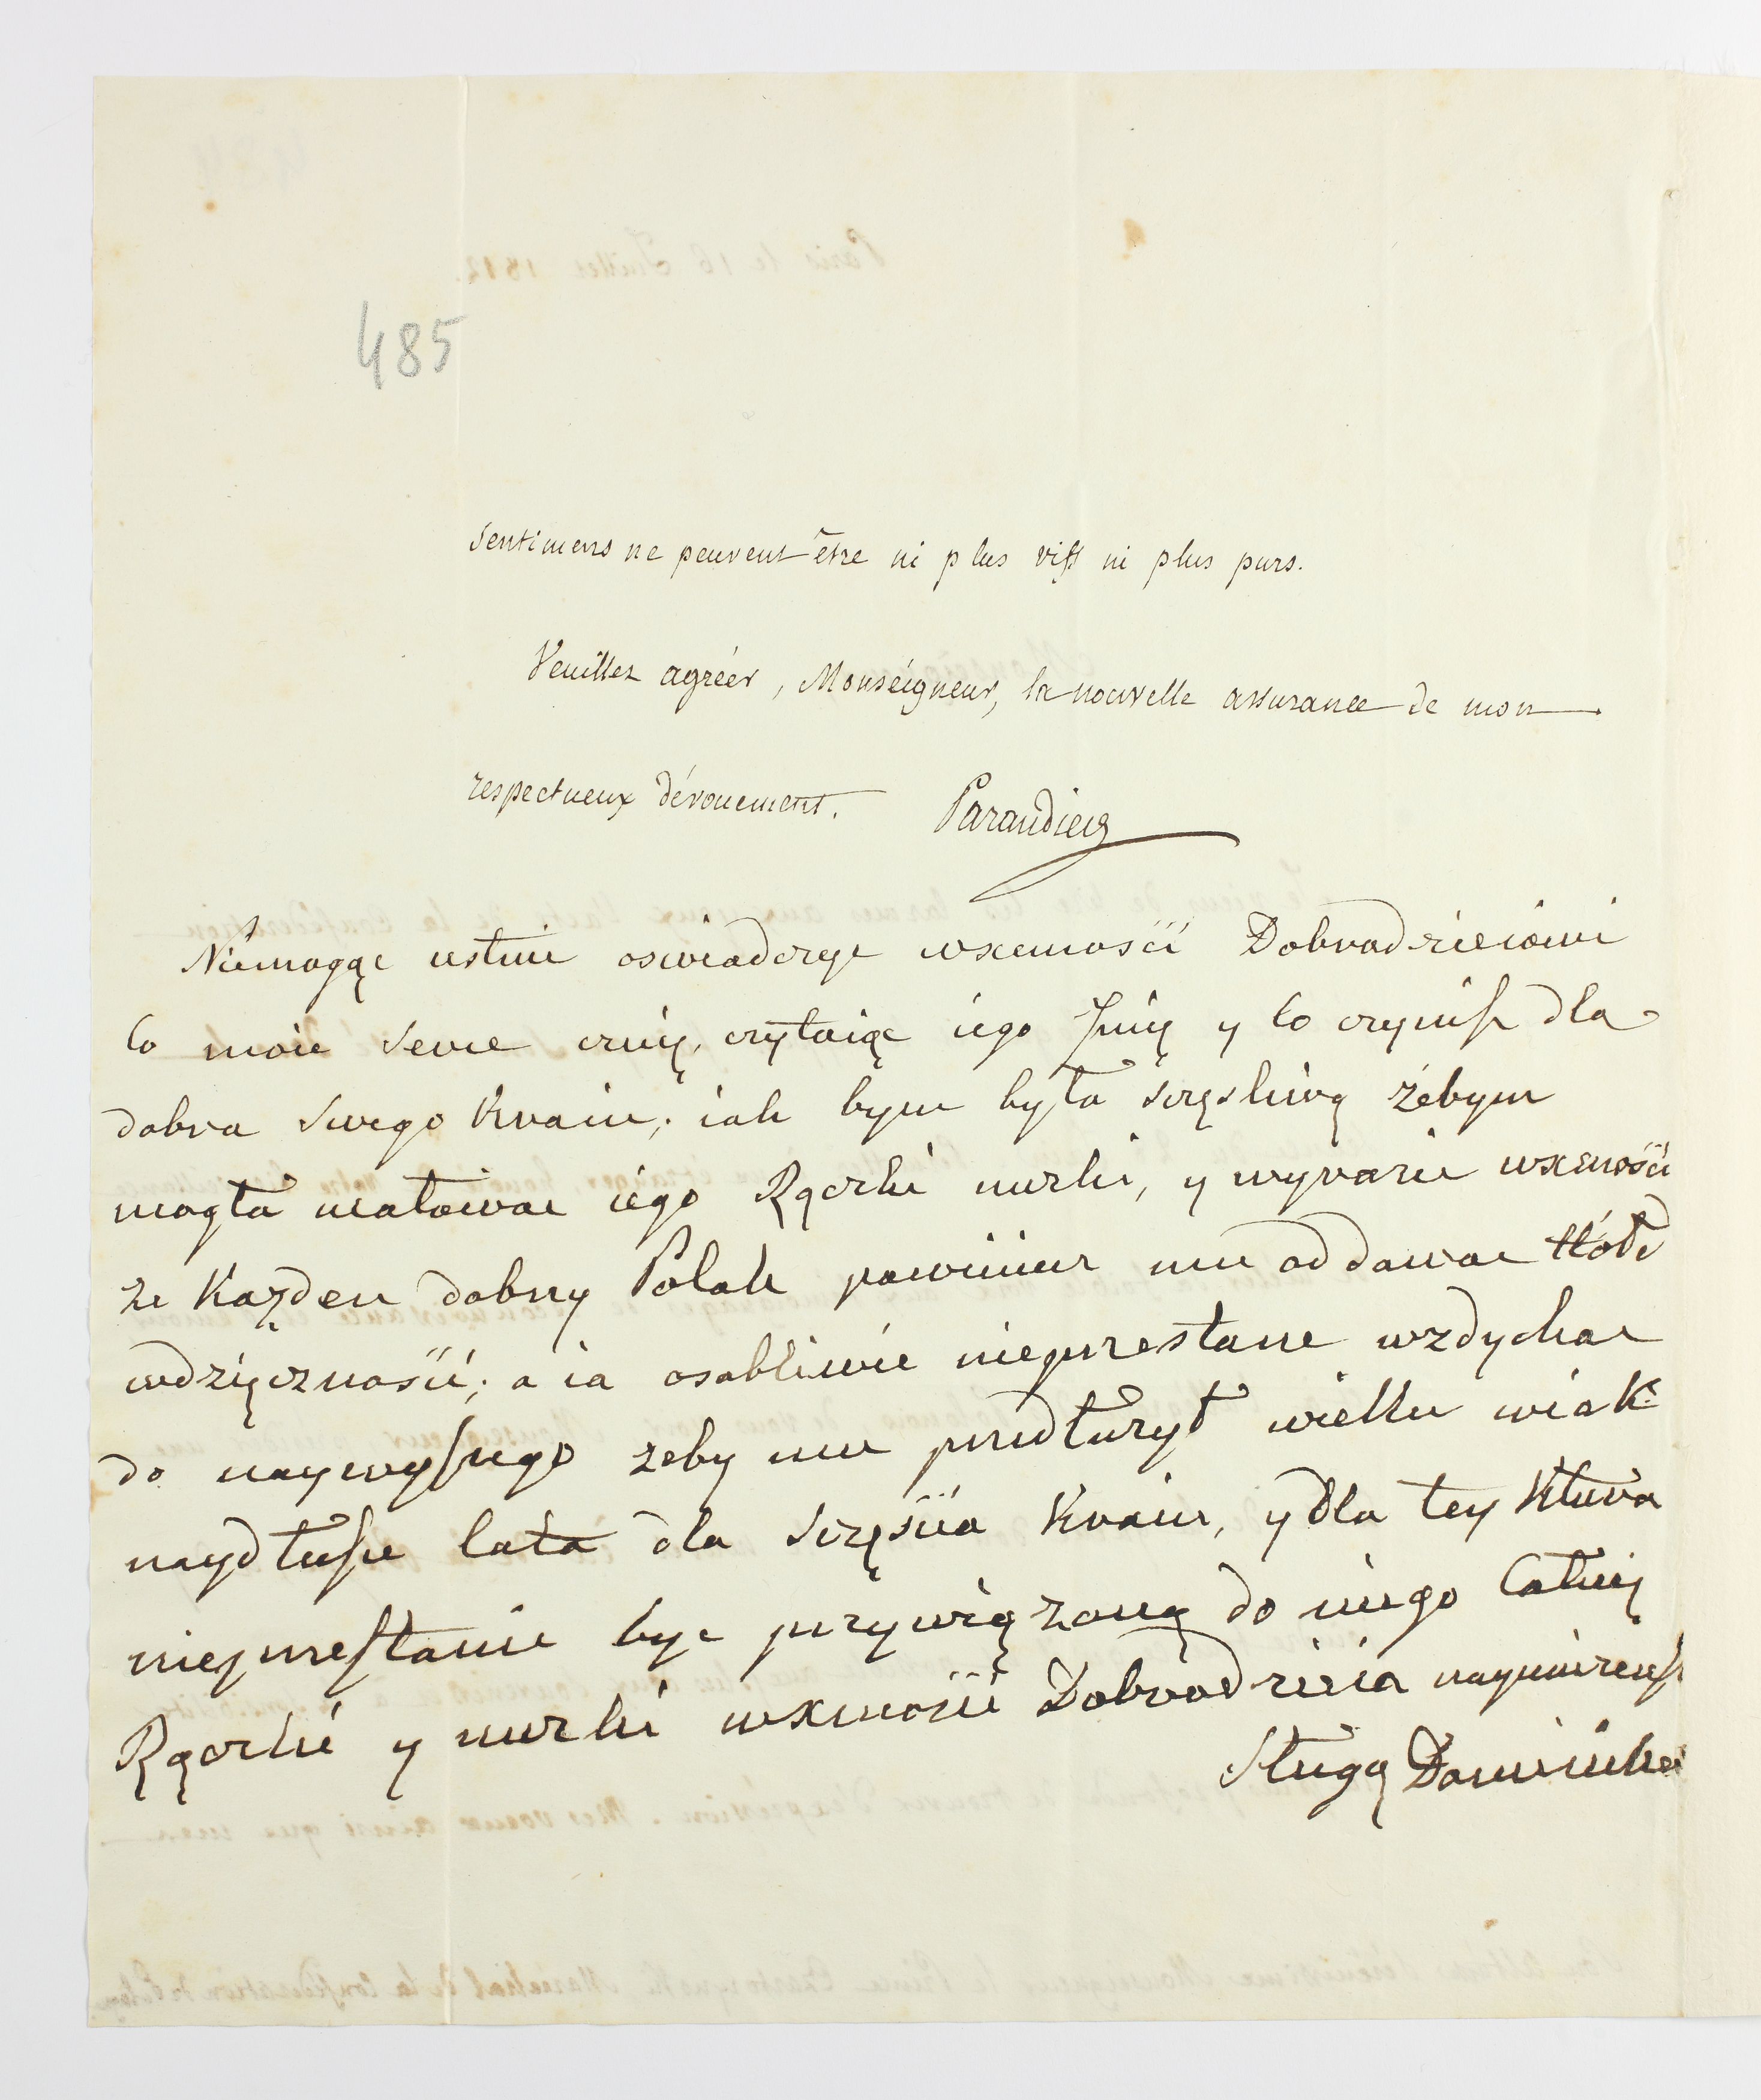 485
sentimens ne peuvent être ni plus vifs ni plus purs.
Veuillez agréer, Monséigneur, la nouvelle assurance de mon
respectueux dévouement. Parandier
Niemogąc ustnie oswiadczyc wxcmości Dobrodzieiowi
co moie serce czuię, czytaiąc iego Imię y co czynisz dla
dobra swego Kraiu; iak bym była sczęsliwą żebym
mogła całowac iego Rączki nuzki, y wyrazic wxcmości
ze Każden dobry Polak powinien mu oddawac Hołd
wdzięcznosci; a ia osobliwie nieprzestane wzdychac
do naywyszego zeby mu przedłuzył wielku wiak
naydłusze lata dla sczęścia Kraiu, y dla tey Ktura
nieprzestanie byc przywiązaną do niego Całuię
Rączki y nuzki wxmości Dobrodzieia nayniższ
Sługą Dominika